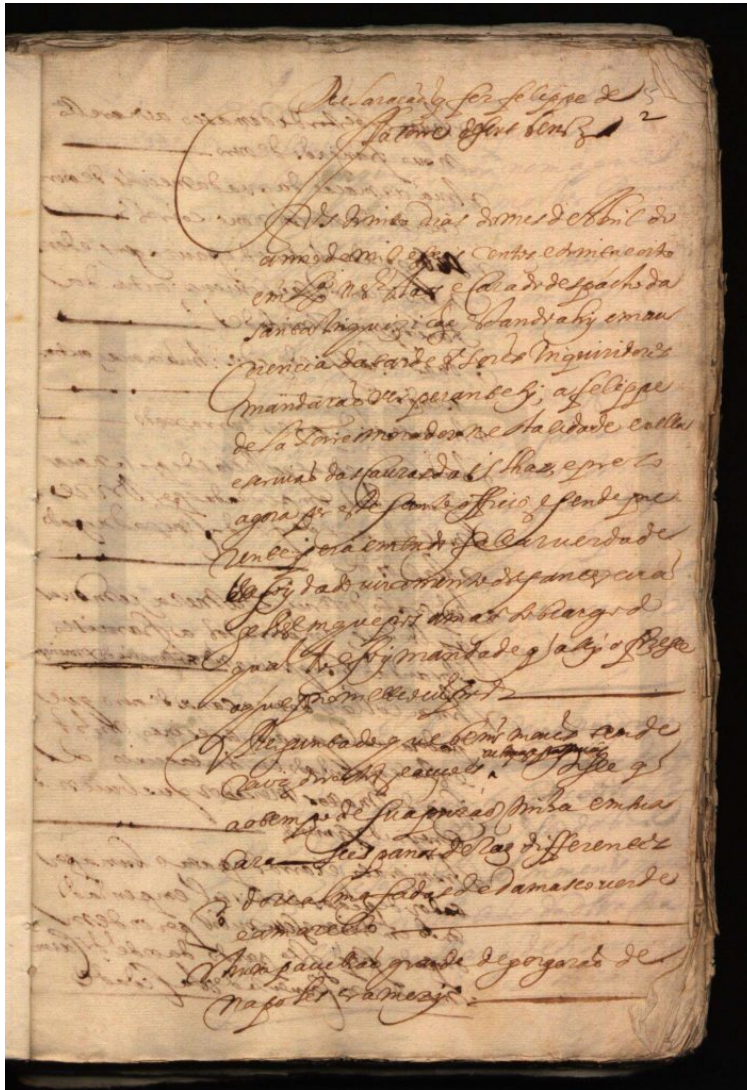 Declaração q̃ fez felippe de
la torre de seus bens 2
Aos dinito dias do mes de Abril do
anno de mil e seis centos e
em Lxª nos e Casa do despacho da
santa Inquizição estando ahy em au
diencia da tarde os sores Inquizidores
mandarão vir perante sy, a felippe
de la Torre morador nesta cidade e
escrivão das das Ilhas, e prezo
agora por este santo officio, e sendo pre
zente, pera em tudo fallar verdade
lhe foy dado juramento dos santos evan
gelhos em que pos a mão, sob cargo do
qual lhe foy mandado q̃ assy o fizesse
o que prometteo
Perguntado que bens moveis ou de
raiz tinha, e disse q̃
ao tempo de sua prizão tinha em sua
caza seis panos de raz differentes
doze almofadas de Damasco verde
e amarello
hum pavelhão grande de gorgorão de
napoles carmezi